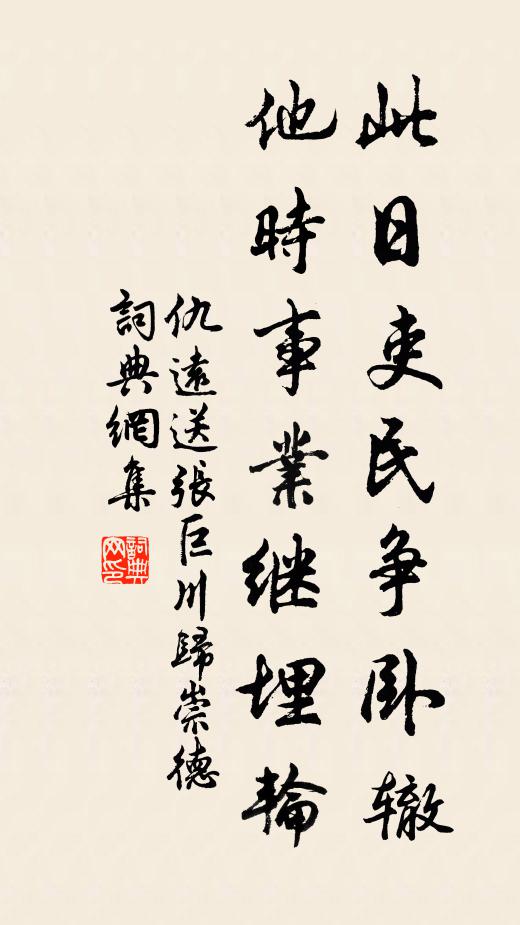 此日吏民争卧辙
他時事業继埋輪
仇遠送張巨川歸崇德
詞典網集
詞典網印